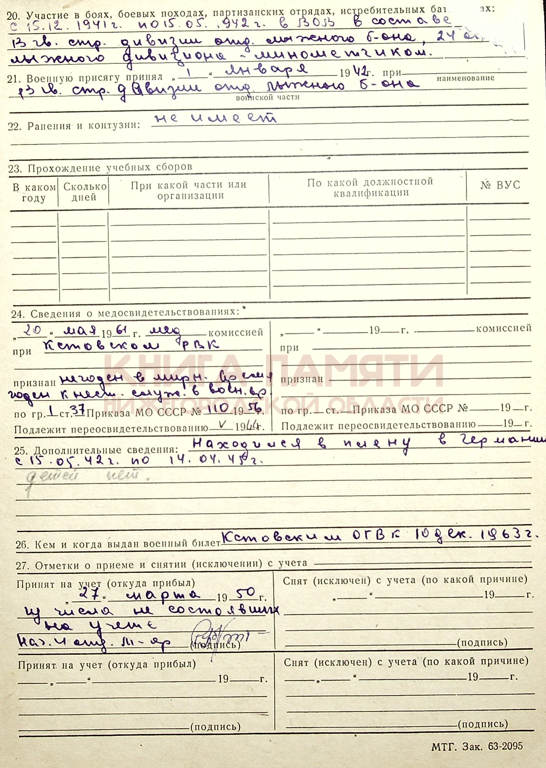 20. Участие в боях, боевых походах, партизанских отрядах, истребительных бат ах:
с 15.12.1941г. по 15.05.1942г. в ВОВ в составе
13 гв. стр. дивизии отд. лыжного б-она, 24
лыжного дивизиона - минометчиком.
21. Военную присягу принял „ 1 “ января 1942 г. при
наименование
13 гв. стр. дивизии отд. лыжного б-она
воинской части
22. Ранения и контузии: не имеет
23. Прохождение учебных сборов
В каком году Сколько дней При какой части или организации По какой должностной квалификации № ВУС
24. Сведения о медосвидетельствованиях:
„20“ мая 1961 г. мед комиссией
при Кстовском РВК
признан негоден в мирн. время
годен к нест. служ. в воен. вр.
по гр. 1 ст. 37 Приказа МО СССР № 110 1956.
Подлежит переосвидетельствованию V 1964 г.
„ — “ — 19 — г. комиссией
при
признан
по гр. — ст. — Приказа МО СССР № — 19 — г.
Подлежит переосвидетельствованию — 19 — г.
25. Дополнительные сведения: Находился в плену в Германии
с 15.05.42г. по 14.04.45г.
детей нет.
26. Кем и когда выдан военный билет Кстовским ОГВК 10 дек. 1963 г.
27. Отметки о приеме и снятии (исключении) с учета
Принят на учет (откуда прибыл)
27. марта 1950 г.
из числа не состоявших
на учете
Нач. 4 отд. м-яр
(подпись)
Снят (исключен) с учета (по какой причине)
„ — “ — 19 — г.
(подпись)
Принят на учет (откуда прибыл)
„ — “ — 19 — г.
(подпись)
Снят (исключен) с учета (по какой причине)
„ — “ — 19 — г.
(подпись)
МТГ. Зак. 63-2095
КНИГА ПАМЯТИ
НИЖЕГОРОДСКОЙ ОБЛАСТИ